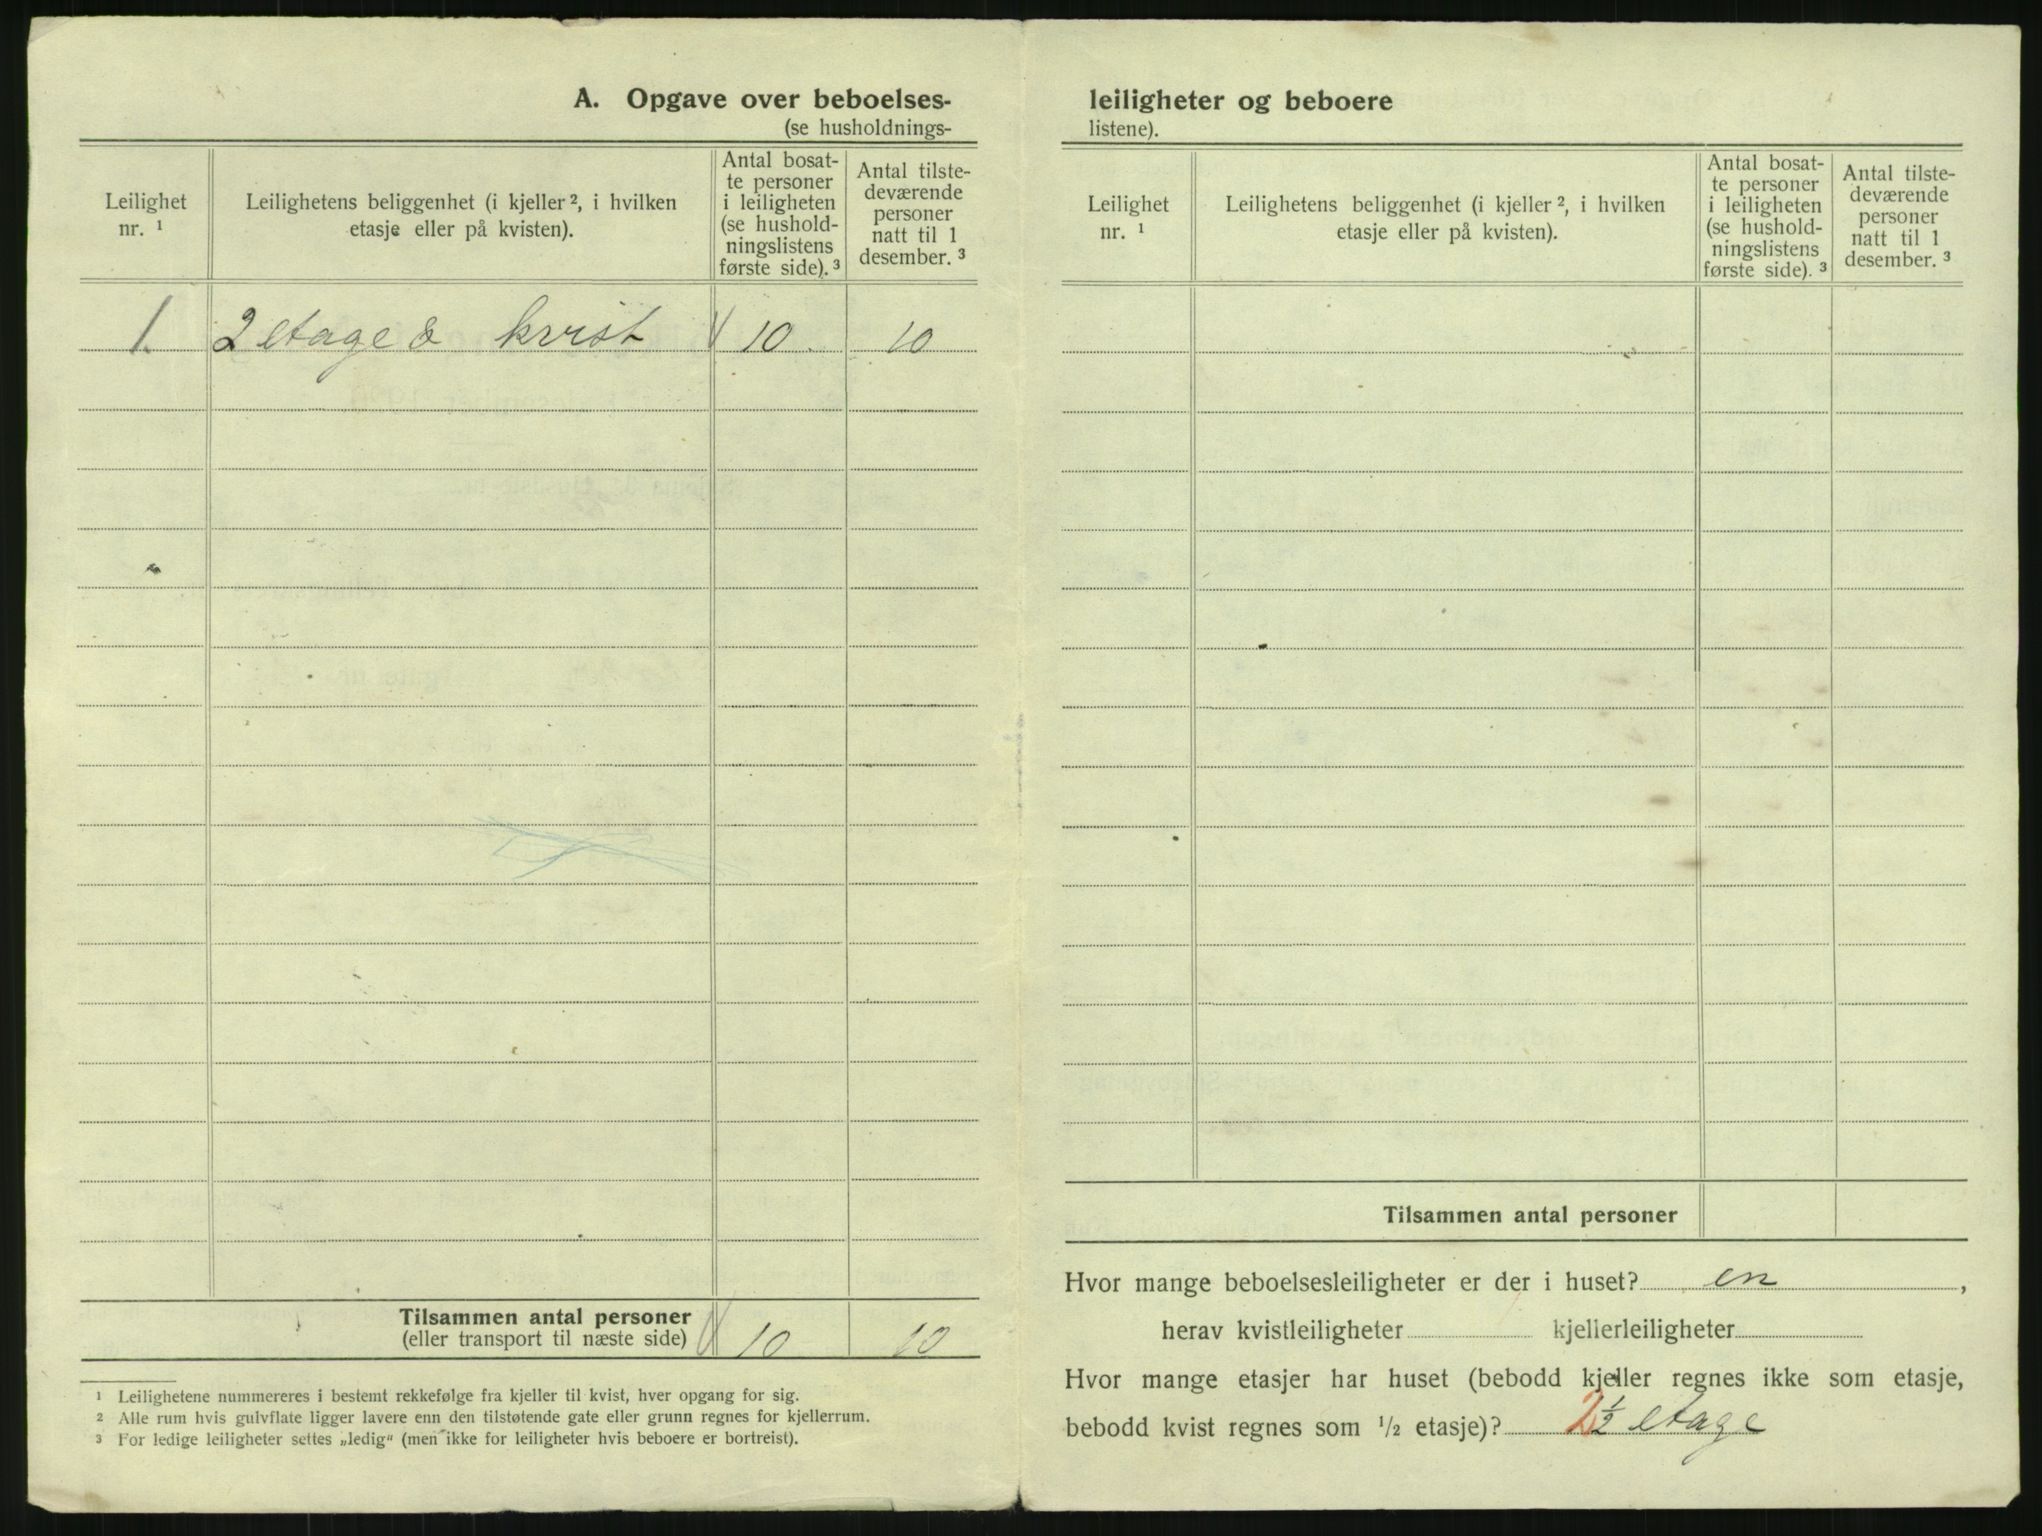 A. Opgave over beboelses-
(se husholdnings-
Leilighet
nr. ¹
Leilighetens beliggenhet (i kjeller ², i hvilken
etasje eller på kvisten).
Antal bosat-
te personer
i leiligheten
(se hushold-
ningslistens
første side). ³
Antal tilste-
deværende
personer
natt til 1
desember. ³
1. 2 etage & kvist 10 10
Tilsammen antal personer
(eller transport til næste side) 10 10
¹ Leilighetene nummereres i bestemt rekkefølge fra kjeller til kvist, hver opgang for sig.
² Alle rum hvis gulvflate ligger lavere enn den tilstøtende gate eller grunn regnes for kjellerrum.
³ For ledige leiligheter settes „ledig“ (men ikke for leiligheter hvis beboere er bortreist).
leiligheter og beboere
listene).
Leilighet
nr. ¹
Leilighetens beliggenhet (i kjeller ², i hvilken
etasje eller på kvisten).
Antal bosat-
te personer
i leiligheten
(se hushold-
ningslistens
første side). ³
Antal tilste-
deværende
personer
natt til 1
desember. ³
Tilsammen antal personer
Hvor mange beboelsesleiligheter er der i huset? en ,
herav kvistleiligheter kjellerleiligheter
Hvor mange etasjer har huset (bebodd kjeller regnes ikke som etasje,
bebodd kvist regnes som ½ etasje)? 2½ etage